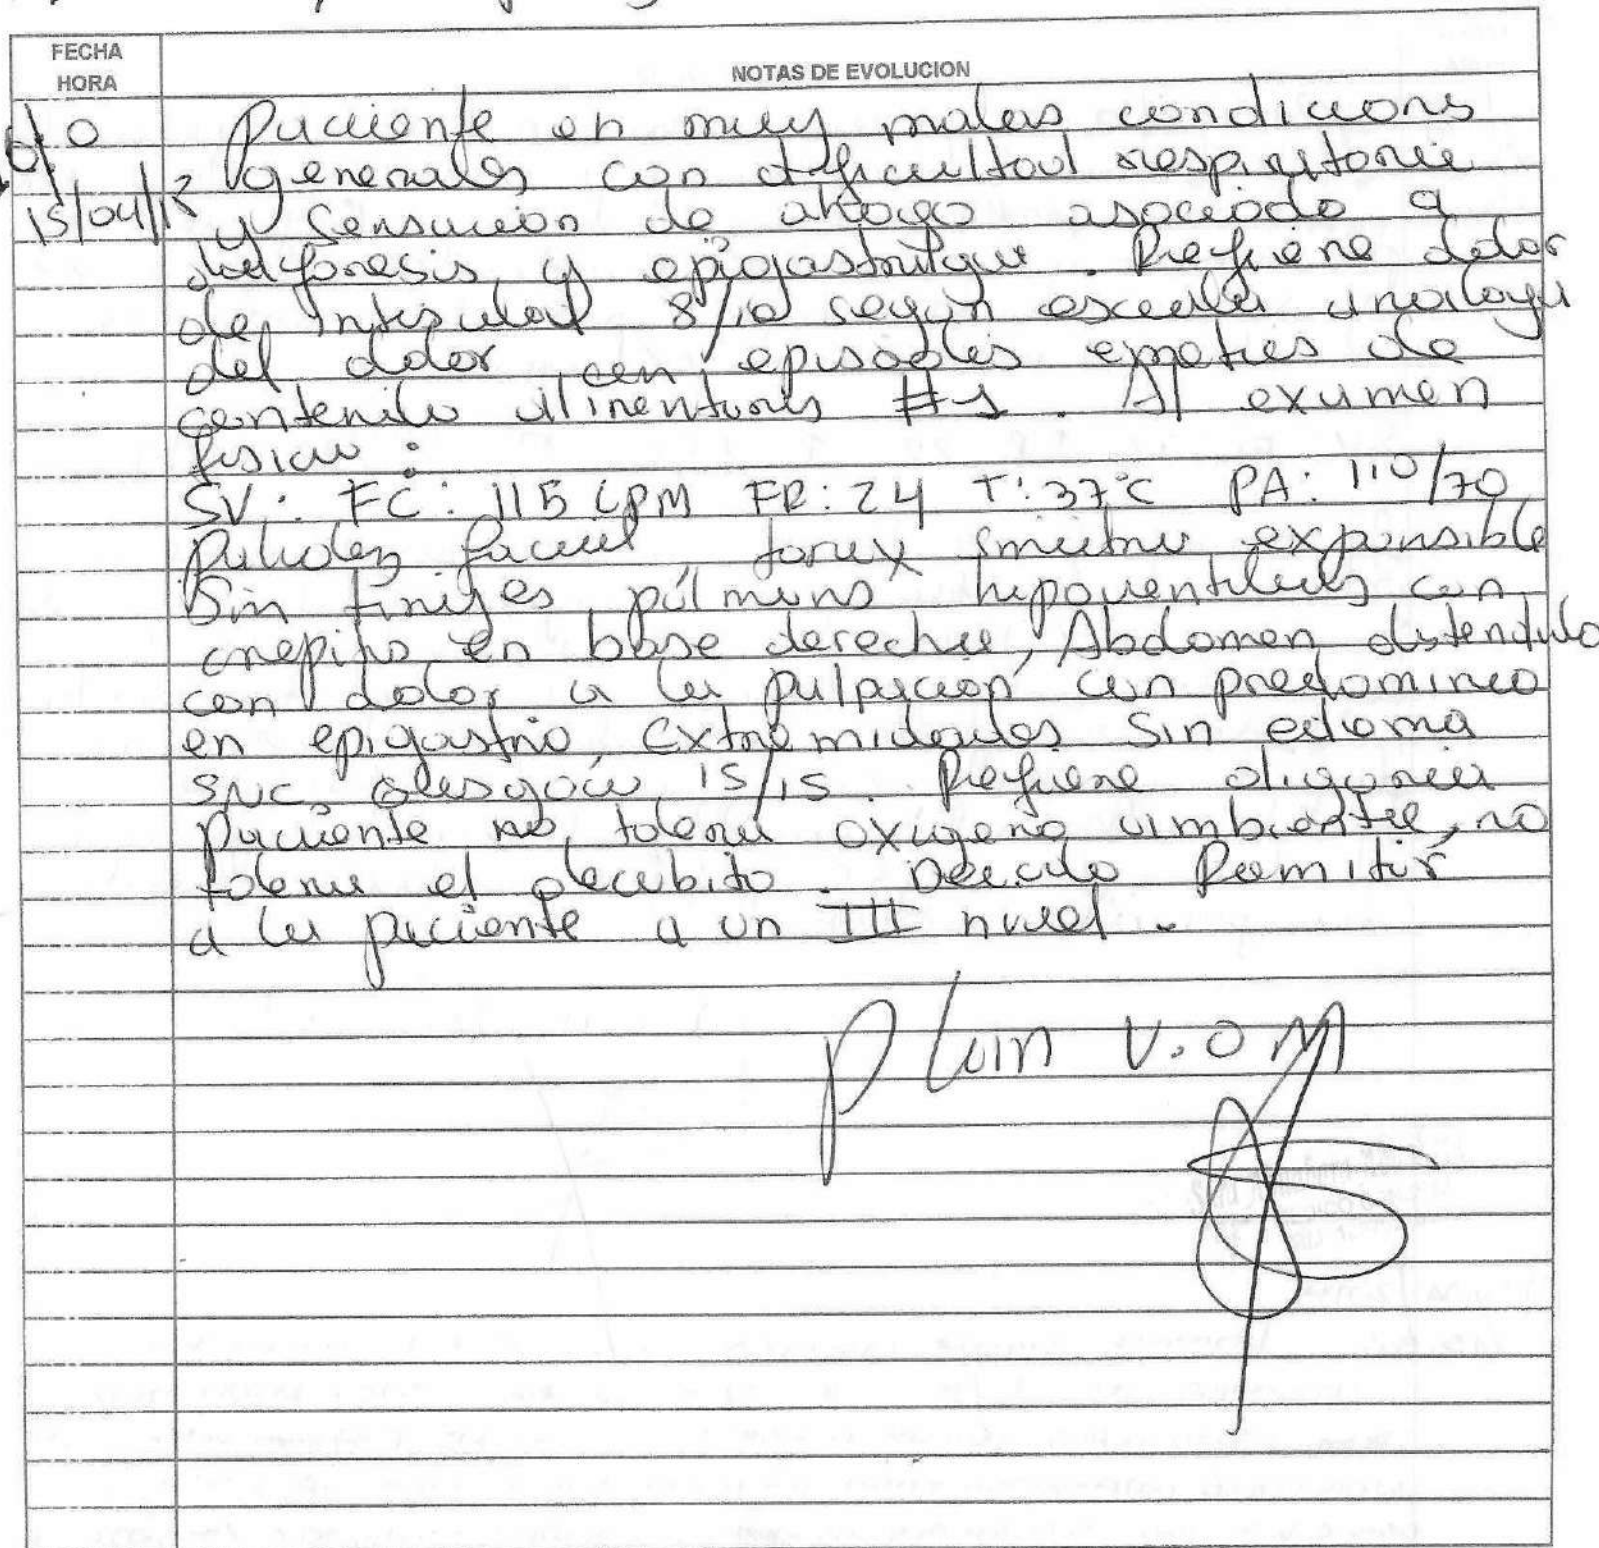 FECHA
HORA
NOTAS DE EVOLUCION
Paciente en muy malas condicions
generales con dificultad respiratoria
15/04/13 y Sensacion de ahogo asociado a
diaforesis y epigastralgia. Refiere dolor
de intesidad 8/10 según escala analoga
del dolor, con episodios emeticos de
contenido alimentario #1. Al examen
fisico:
SV: FC: 115 LPM FR: 24 T: 37°C PA: 110/70
Palidez facial, torax simetrico expansible
Sin tirajes, pulmons hipoventilados con
crepitos en base derecha, Abdomen distendido
con dolor a la palpacion con predominio
en epigastrio, Extremidades Sin edema
SNC, Glasgow 15/15. Refiere oliguria
Paciente no tolera oxigeno ambiente, no
tolera el decubito. Decido Remitir
a la paciente a un III nivel.
V.O M